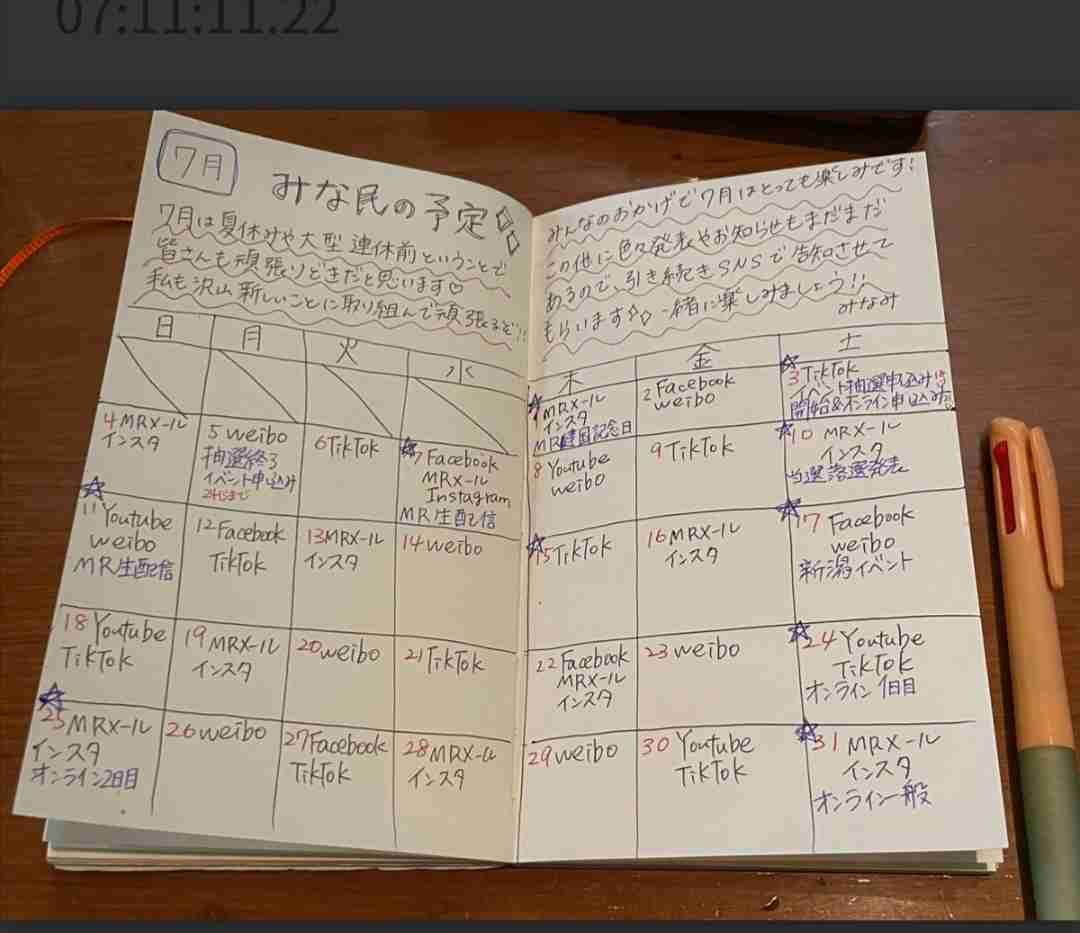 07:11:11.22
7月
みな民の予定
7月は夏休みや大型連休前ということで
皆さんも頑張りどきだと思います♡
私も沢山新しいことに取り組んで頑張るぞ!!
みんなのおかげで7月はとっても楽しみです!
この他に色々発表やお知らせもまだまだ
あるので、引き続きSNSで告知させて
もらいます 一緒に楽しみましょう!!
みなみ
日 月 火 水 木 金 土
MRメール
インスタ
MR建国記念日
2 Facebook
weibo
3 TikTok
イベント抽選申込み
開始&オンライン申込み
4 MRメール
インスタ
5 weibo
抽選終了
イベント申込み
24じまで
6 TikTok
7 Facebook
MRメール
Instagram
MR生配信
8 Youtube
weibo
9 TikTok
10 MRメール
インスタ
当選落選発表
11 Youtube
weibo
MR生配信
12 Facebook
TikTok
13 MRメール
インスタ
14 weibo
15 TikTok
16 MRメール
インスタ
17 Facebook
weibo
新潟イベント
18 Youtube
TikTok
19 MRメール
インスタ
20 weibo
21 TikTok
22 Facebook
MRメール
インスタ
23 weibo
24 Youtube
TikTok
オンライン1日目
25 MRメール
インスタ
オンライン2日目
26 weibo
27 Facebook
TikTok
28 MRメール
インスタ
29 weibo
30 Youtube
TikTok
31 MRメール
インスタ
オンライン一般